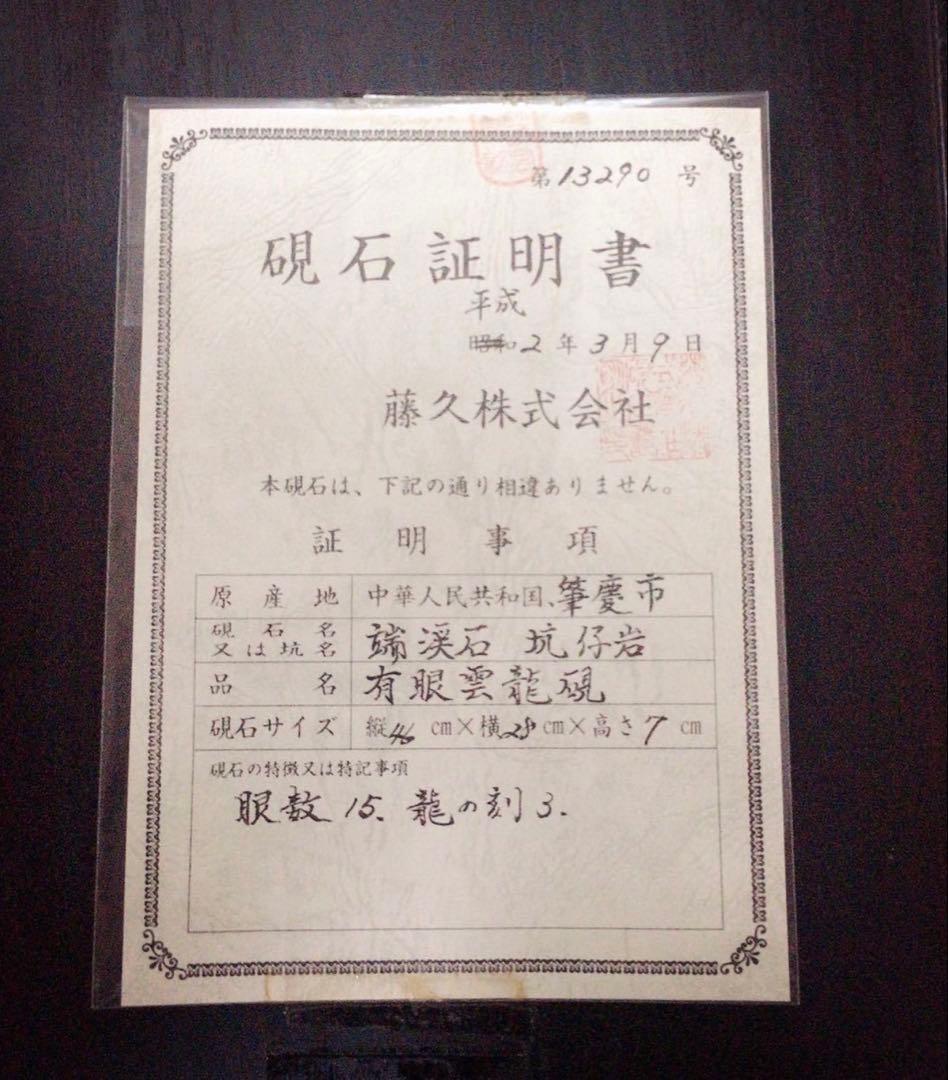 第13290号
硯石証明書
平成
昭和2年3月9日
藤久株式会社
本硯石は、下記の通り相違ありません。
証明事項
原産地 中華人民共和国、肇慶市
硯石名又は坑名 端渓石 坑仔岩
品名 有眼雲龍硯
硯石サイズ 縦46cm×横28cm×高さ7cm
硯石の特徴又は特記事項
眼数15、龍の刻3.